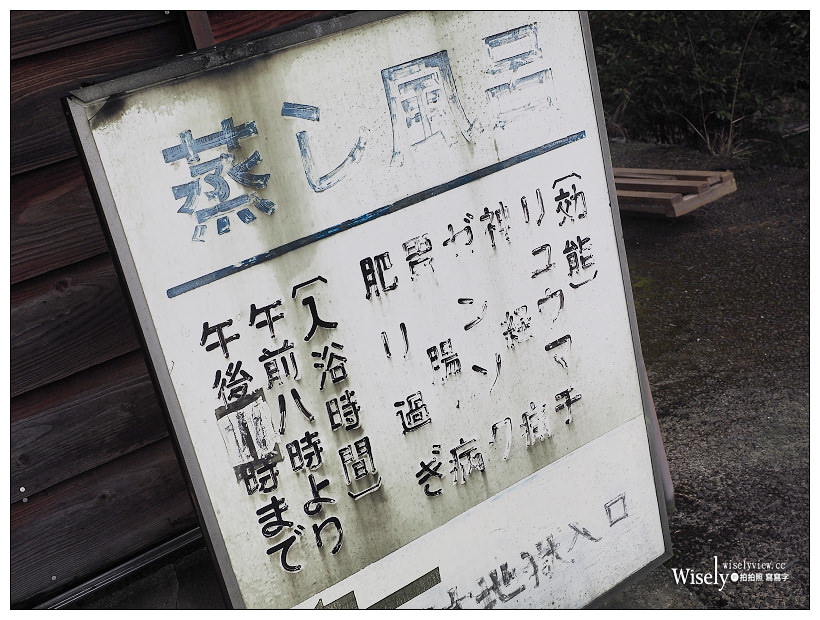 蒸し風呂
(効能)
リュウマチ
神経痛
ガンソク
胃腸病
肥り過ぎ
(入浴時間)
午前八時より
午後 時まで
地獄入口
Wisely
wiselyview.cc
拍拍照 寫寫字